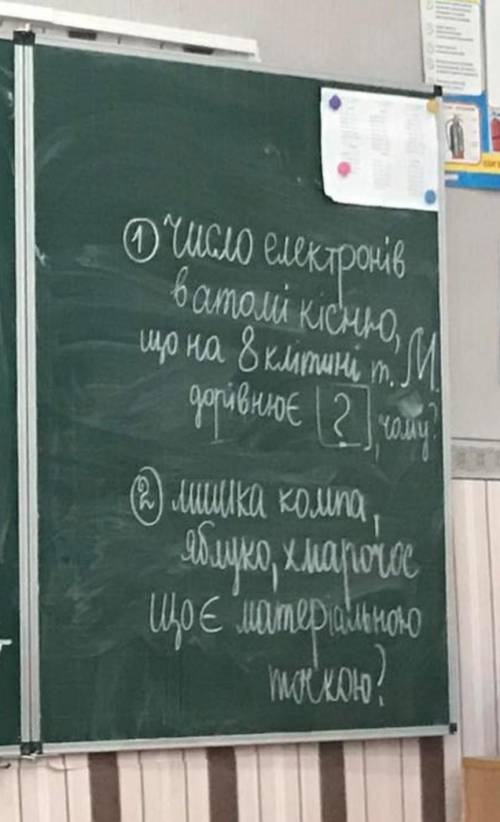 ① Число електронів
в атомі кісню,
що на 8 клітині т. М.
дорівнює [?], чому?
② мишка компа,
яблуко, хмарочос
що є матеріальною
точкою?